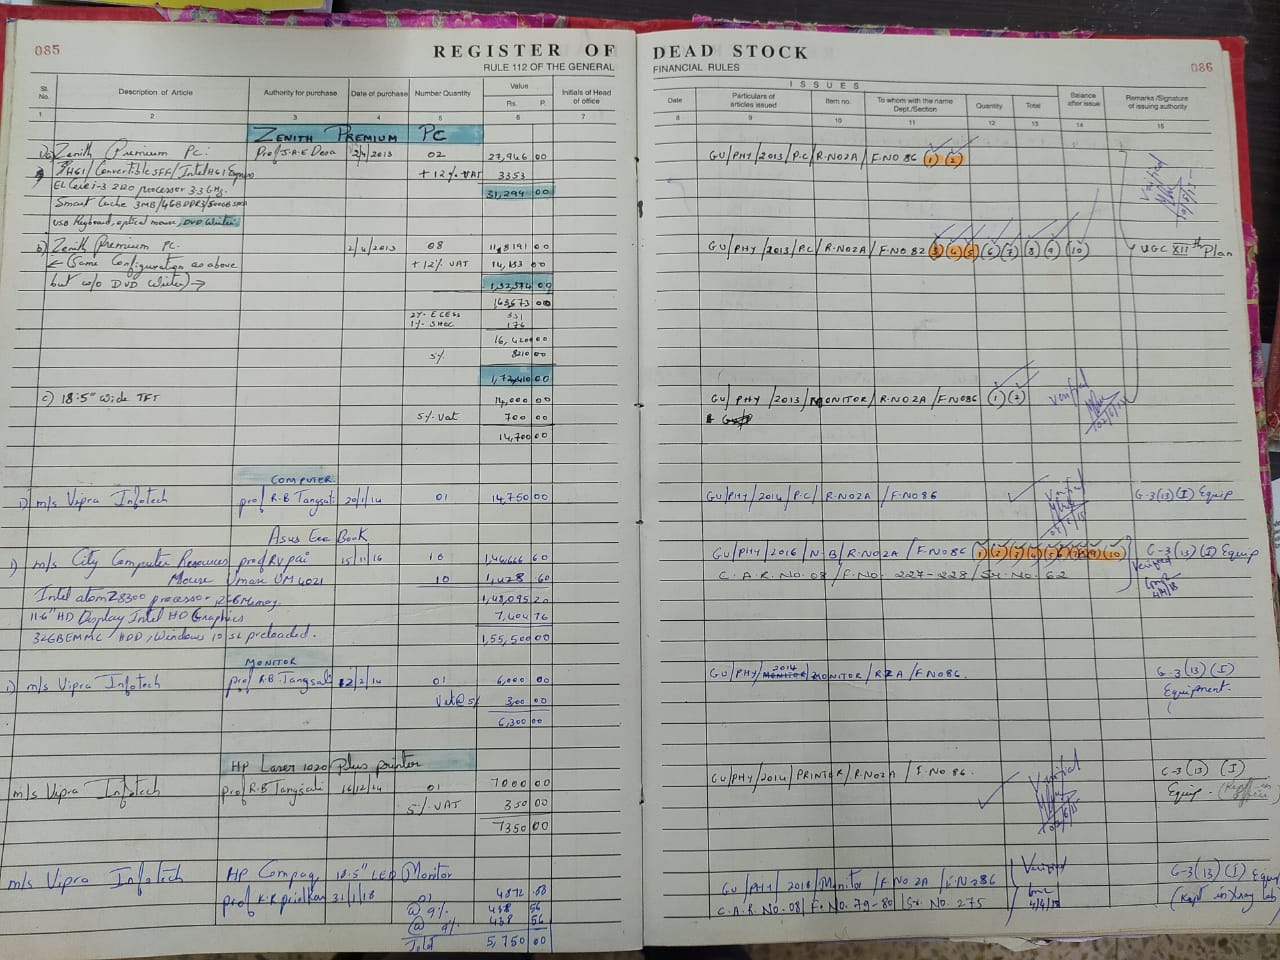 085
REGISTER OF
RULE 112 OF THE GENERAL
Sl. No.
Description of Article
Authority for purchase
Date of purchase
Number Quantity
Value
Rs. P.
Initials of Head of office
1 2 3 4 5 6 7
ZENITH PREMIUM PC
Zenith Premium PC: Prof J.A.E Desa 2/4/2013 02 27,946 00
+ 12% VAT 3353
31,294 00
EL Core i-3 2120 processor 3.3 GHz.
Smart Cache 3MB/4GB DDR3/500GB
USB Keyboard, optical mouse, DVD Writer
b) Zenith Premium PC. 2/4/2013 08 00
← (Same Configuration as above + 12% VAT 00
but w/o DVD Writer) → 1,32,374 00
163673 00
2% ECESS 331
1% SHEC
16,420 00
5% 8210 00
1,72,410 00
c) 18.5" Wide TFT 14,000 00
5% Vat 700 00
14,700 00
COMPUTER
1) m/s Vipra Infotech prof R.B Tangsali 20/1/14 01 14,750 00
Asus Eee Book
1) m/s City Computer Resources prof RV pai 15/11/16 10 60
Mouse Umax UM 4021 10 1,428 60
Intel atom Z8300 processor, 2GB Memory. 1,48,095 20
11.6" HD Display Intel HD Graphics 7,404 76
32GB EMMC HDD, Windows 10 SL preloaded. 1,55,500 00
MONITOR
1) m/s Vipra Infotech prof R.B Tangsali 12/2/14 01 6,000 00
Vat @ 5% 300 00
6,300 00
HP Laser 1020 Plus printer
m/s Vipra Infotech prof R.B Tangsali 16/12/14 01 7000 00
5% VAT 350 00
7350 00
m/s Vipra Infotech HP Compaq 18.5" LED Monitor
prof K.R priolkar 31/1/18 01 4872 88
@ 9% 438 56
@ 9% 438 56
Total 5,750 00
DEAD STOCK
FINANCIAL RULES
086
ISSUES
Date
Particulars of articles issued
Item no.
To whom with the name Dept./Section
Quantity
Total
Balance after issue
Remarks/Signature of issuing authority
8 9 10 11 12 13 14 15
GU/PHY/2013/P.C/R.NO2A/F.NO 86 1 2
Verified
GU/PHY/2013/P.C/R.NO2A/F.NO 82 3 4 5 6 7 8 9 10 UGC XIIth Plan
GU/PHY/2013/MONITOR/R.NO2A/F.NO86 1 2 Verified
GU/PHY/2014/P.C/R.NO2A/F.NO86 Verified G-3(13)(I) Equip
GU/PHY/2016/N-B/R.NO2A/F.NO86 1 2 3 4 5 6 7 8 9 10 G-3(13)(I) Equip
C.A.R.NO.08/F.NO. 227-228/Sr.NO.62 Verified
GU/PHY/2014/MONITOR/R2A/F.NO86. G-3(13)(I)
Equipment.
GU/PHY/2014/PRINTER/R.NO2A/F.NO 86. Verified G-3(13)(I)
Equip.
GU/PHY/2018/Monitor/F.NO 2A/F.NO86 Verified G-3(13)(I) Equip
C.A.R.NO.08/F.NO.79-80/Sr.NO.275 (Kept in Xray lab)